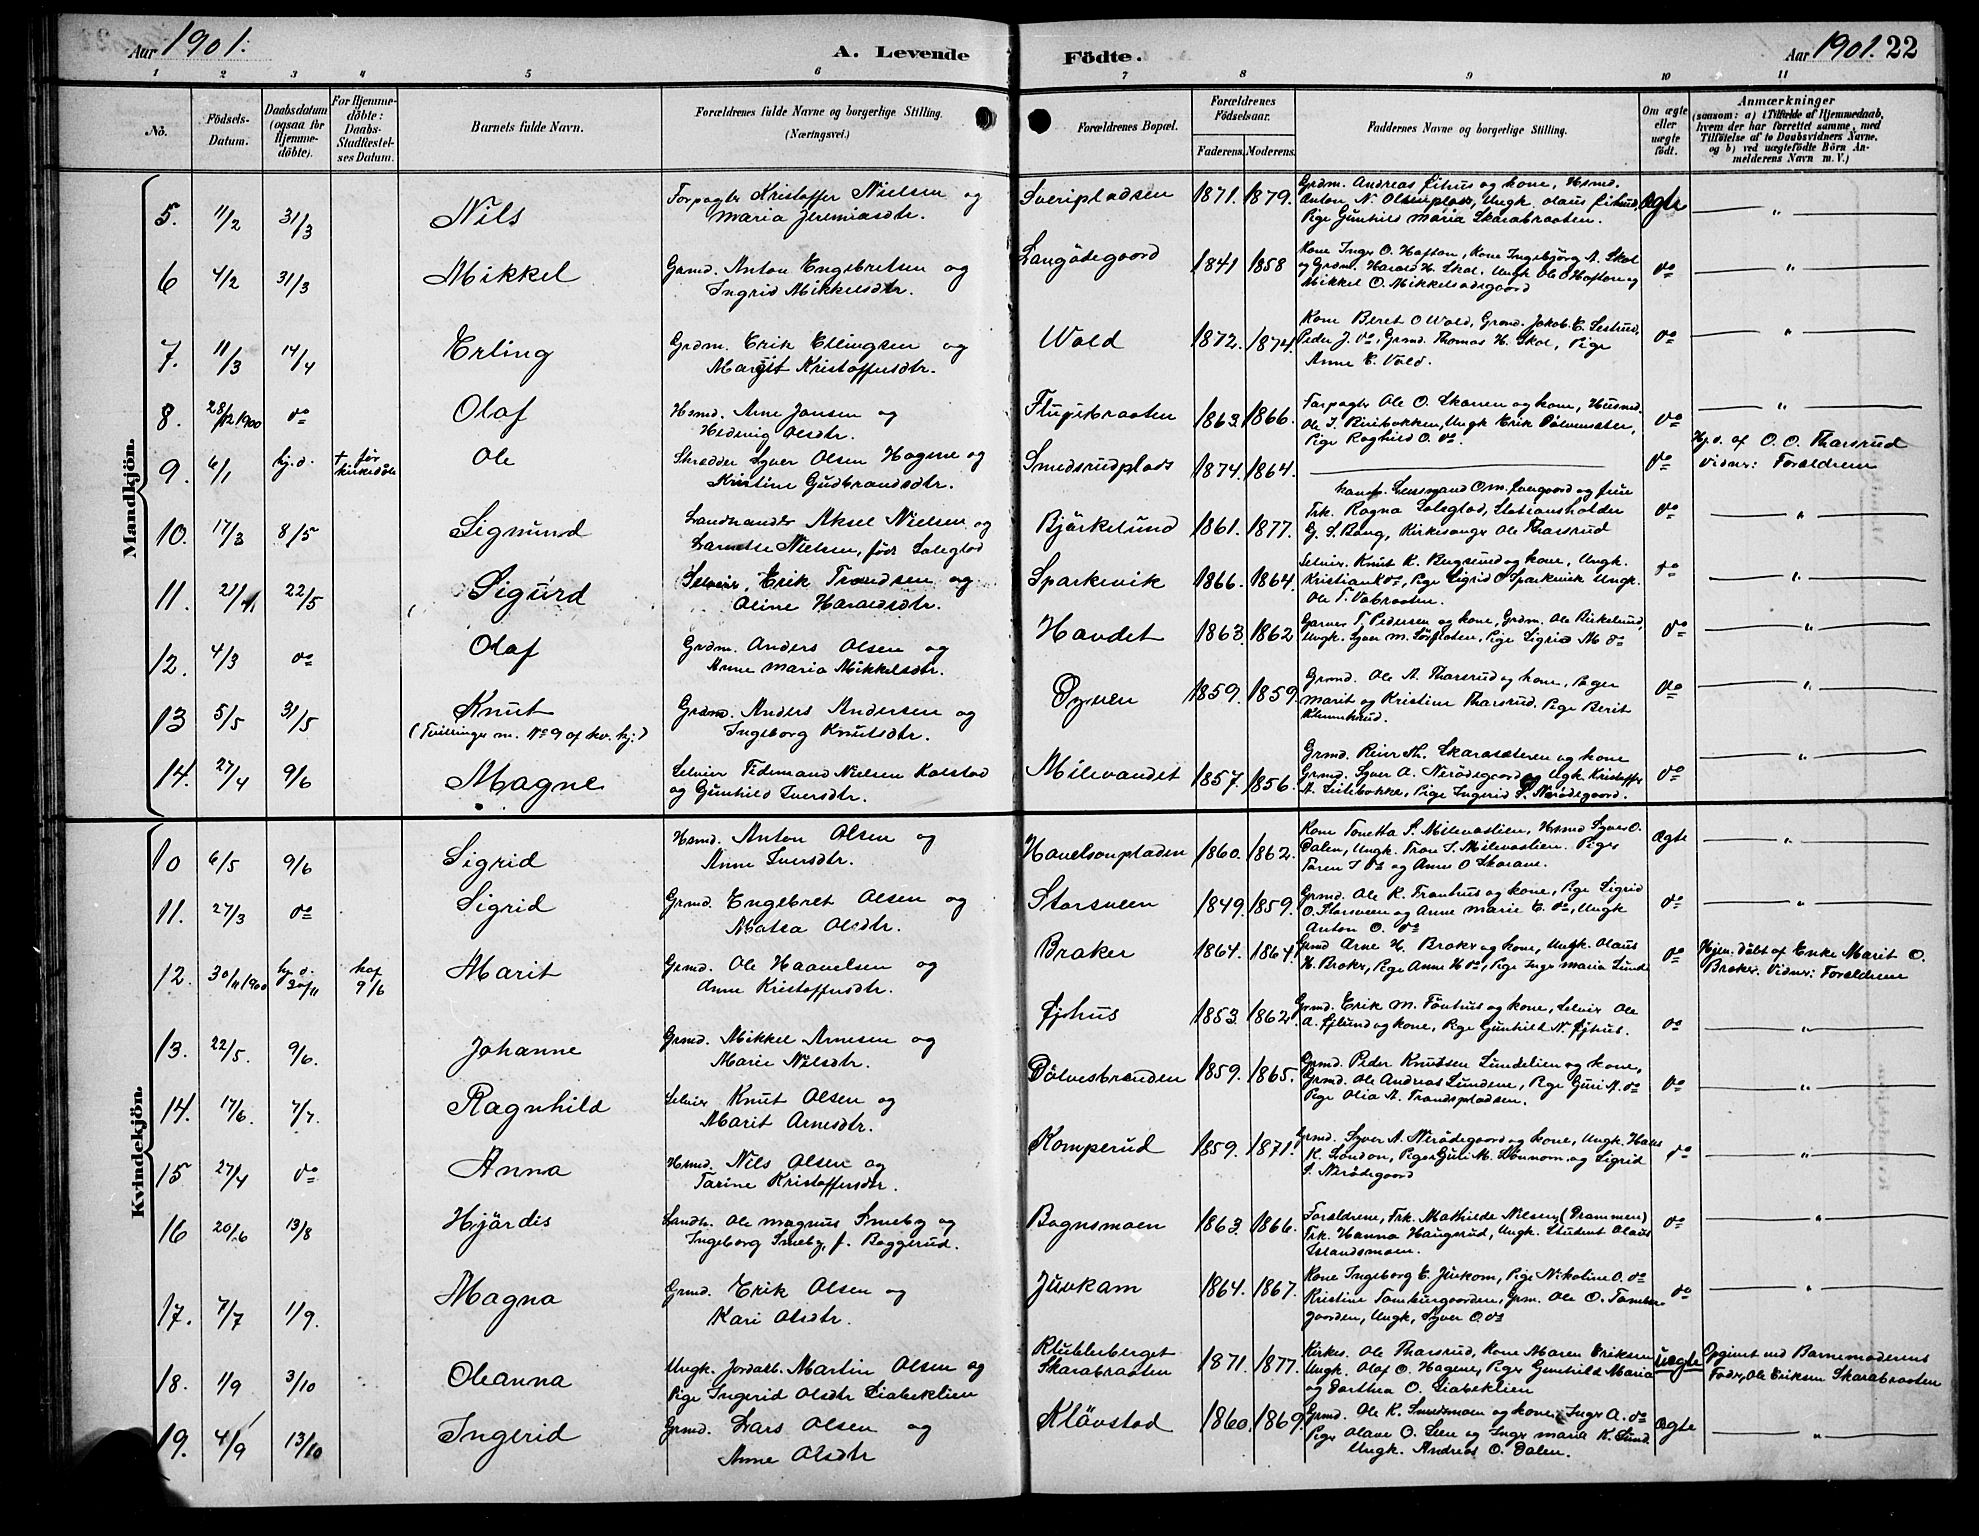 Aar 1901.
A. Levende
Fødte.
Aar 1901. 22
1 2 3 4 5 6 7 8 9 10 11
No.
Födsels-
Datum.
Daabsdatum
(ogsaa for
Hjemme-
döbte).
For Hjemme-
döbte:
Daabs-
Stadfæstel-
ses Datum.
Barnets fulde Navn.
Forældrenes fulde Navne og borgerlige Stilling.
(Næringsvei.)
Forældrenes Bopæl.
Forældrenes
Födselsaar.
Faderens. Moderens.
Faddernes Navne og borgerlige Stilling.
Om ægte
eller
uægte
födt.
Anmærkninger
(saasom: a) i Tilfælde af Hjemmedaab,
hvem der har forrettet samme, med
Tilföielse af to Daabsvidners Navne,
og b) ved uægtefödte Börn An-
melderens Navn m. V.)
Mandkjön.
5. 11/2 31/3 Nils
Forpagter Kristoffer Nielsen og
Maria Jeremiasdtr.
Sveripladsen 1871. 1879.
Grdm. Andreas Ejhus og kone, Hsmd.
Pige Gunhild Maria Skarabraaten.
Ægte
6 4/2 31/3 Mikkel
Gamd. Anton Engebretsen og
Ingrid Mikkelsdtr.
Langödegaard 1841 1858
Kone Inger O. Hafton, Kone Ingebjörg A. Skol
og Grdm. Harald H. Skol, Ungk. Ole O Haftore og
Mikkel O. Mikkelsödegaard
do
7. 11/3 14/4 Erling
Grdm. Erik Ellingsen og
Margit Kristoffersdtr.
Wold 1872. 1874.
Kone Beret O Wold, Grmd. Jakob E. Sestrud,
Peder J. do, Grmd. Thomas H. Skol, Pige
Anne E. Vold.
do
8. 28/12 1900 do Olaf
Hsmd. Arne Jansen og
Hedevig Olsdtr.
1863. 1866.
Forpagter Ole O. Skarren og kone, Husmd.
Pige Ragnild O. do
do
9. 6/1 hj.d. † før kirkedåb Ole
Skrædder Syver Olsen Hagene og
Kristine Gudbrandsdtr.
Smedsrudplads 1874. 1864.
do
Hj.d. af O. O. Tharsrud
Vidner: Forældrene
10. 17/3 8/5 Sigmund
Landhandler Aksel Nielsen og
Nielsen, född Soleglad
Björkelund 1861. 1877.
Frk. Ragna Soleglad, Stationsholder
G. S. Bang, Kirkesanger Ole Tharsrud
do
11. 22/5 Sigurd
Selveier Erik Trondsen og
Oline Haraldsdtr.
Sparkevik 1866. 1864.
Selveier. Knut K. Bergsund og kone, Ungk.
Kristian K do, Pige Sigrid O Sparkevik Ungk.
Ole T. Vabraaten.
do
12. 4/3 do Olaf
Grdm. Anders Olsen og
Anne Maria Mikkelsdtr.
Havdet 1863. 1862
Garver T. Pedersen og kone, Grdm. Ole Birkelund,
Ungk. Syver M. Sørflaten, Pige Sigrid M do
do
13 5/5 31/5 Knut
(Tvillinger m. No 9 af kv. kj:)
Grdm. Anders Andersen og
Ingeborg Knutsdtr.
1859. 1859.
Grmd. Ole A. Tharsrud og kone, Piger
Marit og Kristine Tharsrud. Pige Berit
do
14. 27/4 9/6 Magne
Selvier Tidemand Nielsen Kolstad
og Gunhild Iversdtr.
Milevandet 1857. 1856.
Grmd. Reier Th. Skarasæteren og kone
Grmd. Syver A. Nerödegaard og Ungk. Kristoffer
A. Leitebakke, Pige Ingerid S. Nerödegaard.
do
Kvindekjön.
10 6/5 9/6 Sigrid
Hsmd. Anton Olsen og
Anne Iversdtr.
1860. 1862.
Kone Tonetta S. Milevaslien, Hsmd Syver O.
Dalen, Ungk. Tron S. Milevaslien. Piger
Taren S do og Anne O Skaran.
Ægte
11. 27/3 do Sigrid
Grmd. Engebret Olsen og
Matea Olsdtr.
Storsveen 1849. 1859.
Grmd. Ole K. Franhus og kone, Pige Sigrid
O. Storsveen og Anne Marie E. do, Ungk
Anton O. do
do
12. 30/11 1900 hj.d. 30/11 kof 9/6 Marit
Grmd. Ole Haavelsen og
Anne Kristoffersdtr.
Braker 1864. 1864.
Grmd Arne H. Braker og kone, Ungk. Olaus
H. Braker, Pige Anne H do, Pige Inger Maria Lunde
do
Hjem. döbt af Enke Marit O.
Braker. Vidner: Forældrene
13. 22/5. 9/6. Johanne
Grmd. Mikkel Arnesen og
Marie Nilsdtr.
Ejhus 1853. 1862.
Grmd. Erik M. Fönhus og kone, Selvier Ole
A. Ejlund og kone, Pige Gunhild N. Ejhus.
do
14. 17/6. 7/7. Ragnhild
Selvier Knut Olsen og
Marit Arnesdtr.
Dölvesbranden 1859. 1865.
Grmd. Peder Knudsen Lundelien og kone,
Grmd. Ole Andreas Lundene, Pige Guri A. do
Pige Olia A. Trondspladsen.
do
15 27/4 do Anna
Hsmd. Nils Olsen og
Tarine Kristoffersdtr.
Komperud 1859. 1871.
Grmd. Syver A. Nerödegaard og kone, Ungk. Hans
K. London, Piger Guli M. Dönnom og Sigrid
S. Nerödegaard
do
16 20/6 13/8 Hjördis
Landh. Ole Magnus Smeby og
Ingeborg Smeby, f. Baggerud.
Bagnsmoen 1863. 1866.
Forældrene, Frk. Mathilde Nilsen, (Drammen)
Frk. Hanna Haugerud, Ungk. Student Olaus
Islandsmoen.
do
17. 7/7 1/9. Magna
Grmd. Erik Olsen og
Kari Olsdtr.
Juvkam 1864. 1867.
Kone Ingeborg E. Juvkam, Pige Nikoline O. do
Kristine Tamburgaarden, Grm. Ole O. Tambur-
gaarden, Ungk, Syver O. do
do
18. 1/9 3/10 Oleanna
Ungk. Jordarb. Martin Olsen og
Pige Ingerid Olsdtr Liabeklien
Klubberberget
Skarabraaten 1871. 1877.
Kirkes. Ole Tharsrud, Kone Maren Eriksen
Ungk. Olaf O. Hagene, Piger Gunhild Maria
og Dorthea O. Liabeklien
uægte
Opgivet ved Barnemoderens
Fader, Ole Eriksen Skarabraaten
19. 4/9 13/10 Ingerid
Grmd. Lars Olsen og
Anne Olsdtr
Klövstad 1860. 1869.
Grmd. Ole K. Smedsmoen og kone, Inger A. do
Piger Olave O. Lien og Inger Maria K. Lund.
Ungk. Andreas O. Dalen.
Ægte